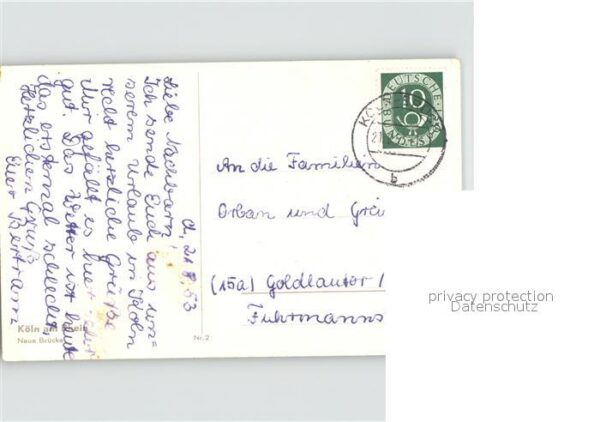 d, 21.8.53
Liebe Nachbarn!
Ich sende Euch aus un=
serem Urlaub in Köln
recht herzliche Grüße
Mir gefällt es hier sehr
gut. Das Wetter ist heute
das erstemal schlecht.
Herzlichen Gruß
Euer Bertram
Köln am Rhein
Neue Brücke
Nr. 2
DEUTSCHE
BUNDESPOST
10
KÖLN
b
An die Familien
Orban und Grei
(15a) Goldlauter /
Fuhrmanns
privacy protection
Datenschutz